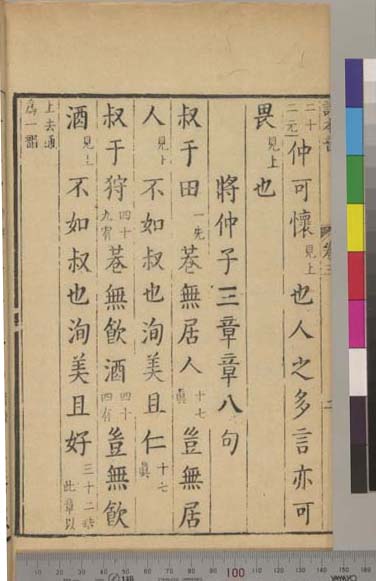 仲可懷見上也人之多言亦可
畏見上也
將仲子三章章八句
叔于田一先巷無居人十七眞豈無居
人見上不如叔也洵美且仁十七眞
叔于狩四十九宥巷無飲酒四十四有豈無飲
酒見上不如叔也洵美且好三十二晧此章以
上去通爲一韻
卷三
二十二元
100